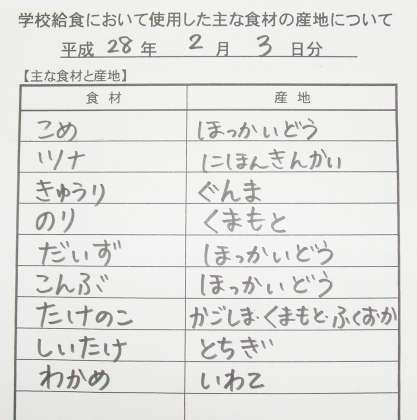 学校給食において使用した主な食材の産地について
平成 28 年 2 月 3 日分
【主な食材と産地】
食材 産地
こめ ほっかいどう
ツナ にほんきんかい
きゅうり ぐんま
のり くまもと
だいず ほっかいどう
こんぶ ほっかいどう
たけのこ かごしま・くまもと・ふくおか
しいたけ とちぎ
わかめ いわて